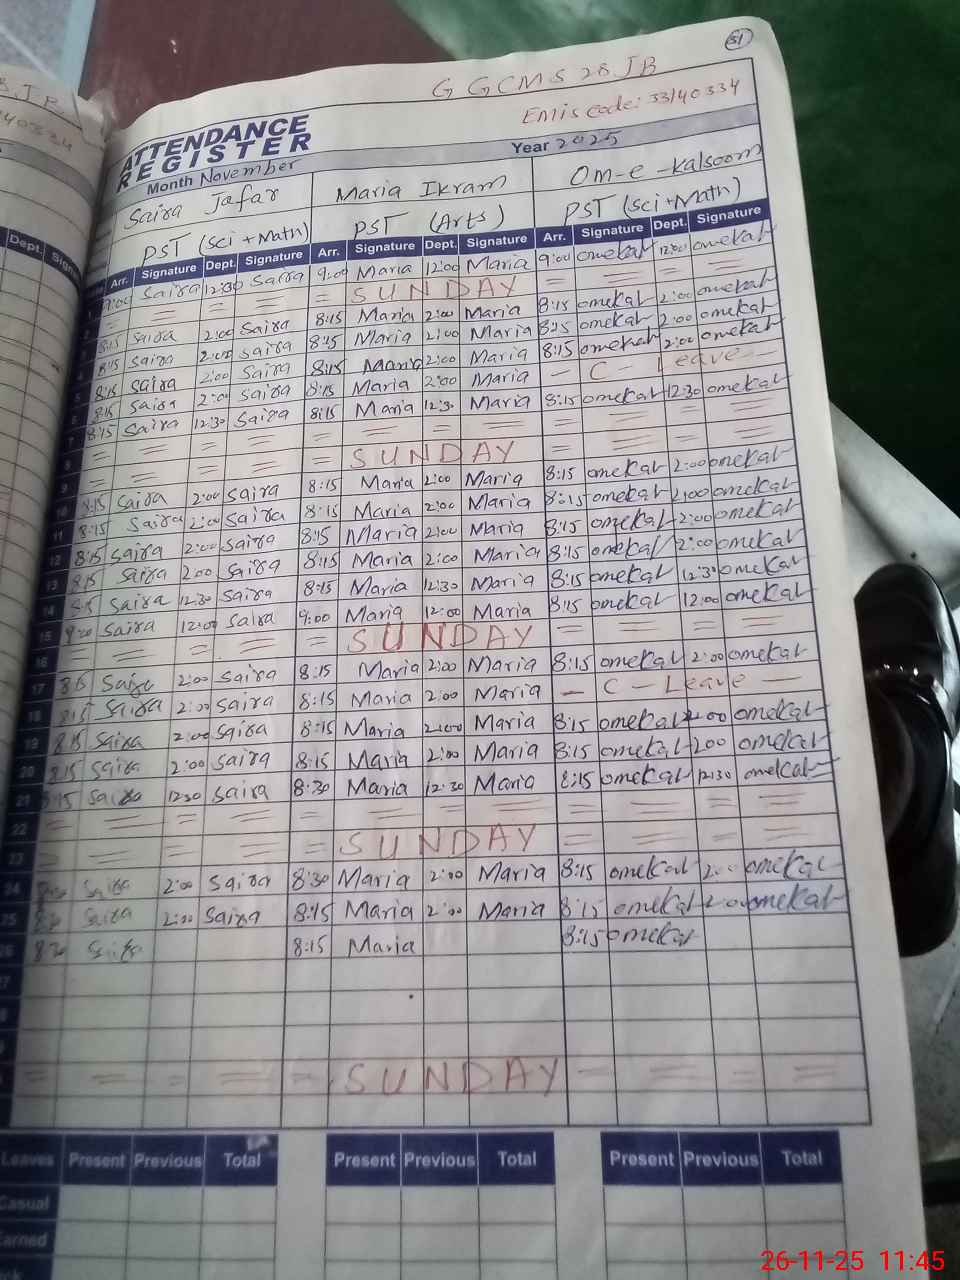 51
G GCMS 28 JB
Emis code: 33140334
ATTENDANCE REGISTER
Month November Year 2025
Saira Jafar Maria Ikram Om-e-Kalsoom
PST (Sci + Math) PST (Arts) PST (Sci+Math)
Arr. Signature Dept. Signature Arr. Signature Dept. Signature Arr. Signature Dept. Signature
9:00 Saira 12:30 Saira 9:00 Maria 12:00 Maria 9:00 omekal 12:00 omekal
= = = = = SUNDAY = = = =
8:15 Saira 2:00 Saira 8:15 Maria 2:00 Maria 8:15 omekal 2:00 omekal
8:15 Saira 2:00 Saira 8:15 Maria 2:00 Maria 8:15 omekal 2:00 omekal
8:15 Saira 2:00 Saira 8:15 Maria 2:00 Maria 8:15 omekal 2:00 omekal
8:15 Saira 2:00 Saira 8:15 Maria 2:00 Maria - C - Leave -
8:15 Saira 12:30 Saira 8:15 Maria 12:30 Maria 8:15 omekal 12:30 omekal
= = = = = = = = = = = =
= = = = = SUNDAY = = = =
8:15 Saira 2:00 Saira 8:15 Maria 2:00 Maria 8:15 omekal 2:00 omekal
8:15 Saira 2:00 Saira 8:15 Maria 2:00 Maria 8:15 omekal 2:00 omekal
8:15 Saira 2:00 Saira 8:15 Maria 2:00 Maria 8:15 omekal 2:00 omekal
8:15 Saira 2:00 Saira 8:15 Maria 2:00 Maria 8:15 omekal 2:00 omekal
8:15 Saira 12:30 Saira 8:15 Maria 12:30 Maria 8:15 omekal 12:30 omekal
8:20 Saira 12:00 Saira 9:00 Maria 12:00 Maria 8:15 omekal 12:00 omekal
= = = = = SUNDAY = = = =
8:15 Saira 2:00 Saira 8:15 Maria 2:00 Maria 8:15 omekal 2:00 omekal
8:15 Saira 2:00 Saira 8:15 Maria 2:00 Maria - C - Leave -
8:15 Saira 2:00 Saira 8:15 Maria 2:00 Maria 8:15 omekal 2:00 omekal
8:15 Saira 2:00 Saira 8:15 Maria 2:00 Maria 8:15 omekal 2:00 omekal
8:15 Saira 12:30 Saira 8:30 Maria 12:30 Maria 8:15 omekal 12:30 omekal
= = = = = = = = = = = =
= = = = = SUNDAY = = = =
Saira 2:00 Saira 8:30 Maria 2:00 Maria 8:15 omekal 2:00 omekal
Saira 2:00 Saira 8:15 Maria 2:00 Maria 8:15 omekal 2:00 omekal
Saira 8:15 Maria 8:15 omekal
= = = = = SUNDAY = = = =
Leaves Present Previous Total Present Previous Total Present Previous Total
Casual
Earned
26-11-25 11:45